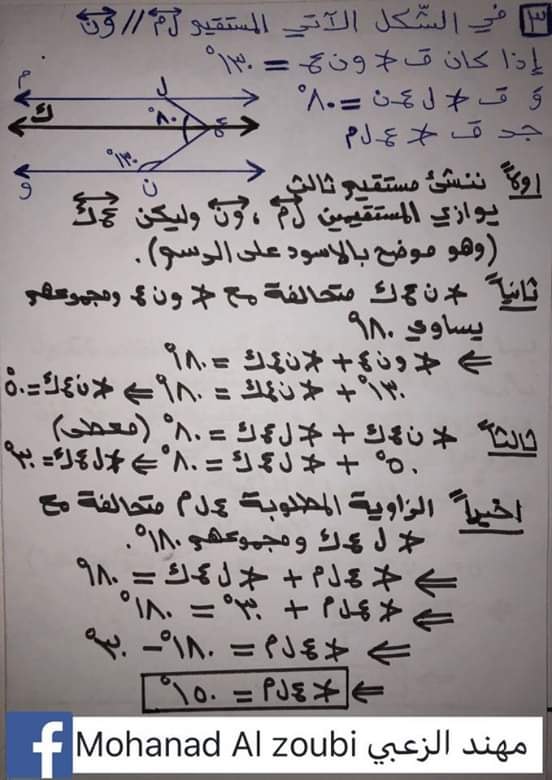 ٣ في الشّكل الآتي المستقيم لم // ون
إذا كان ق ∡ و ن ع = ١٣٠°
و ق ∡ ل ع ن = ٨٠°
جد ق ∡ ع ل م
م ل
ك ٨٠° ع
١٣٠°
و ن
اولاً ننشئ مستقيم ثالث
يوازي المستقيمين لم ، ون وليكن ع ك
(وهو موضح بالاسود على الرسم).
ثانياً ∡ ن ع ك متحالفة مع ∡ و ن ع ومجموعهم
يساوي ١٨٠°
⇐ ∡ و ن ع + ∡ ن ع ك = ١٨٠°
١٣٠° + ∡ ن ع ك = ١٨٠° ⇐ ∡ ن ع ك = ٥٠°
ثالثاً ∡ ن ع ك + ∡ ل ع ك = ٨٠° (معطى)
٥٠° + ∡ ل ع ك = ٨٠° ⇐ ∡ ل ع ك = ٣٠°
اخيراً الزاوية المطلوبة ع ل م متحالفة مع
∡ ل ع ك ومجموعهم ١٨٠°.
⇐ ∡ ع ل م + ∡ ل ع ك = ١٨٠°
⇐ ∡ ع ل م + ٣٠° = ١٨٠°
⇐ ∡ ع ل م = ١٨٠° - ٣٠°
⇐ ∡ ع ل م = ١٥٠°
f Mohanad Al zoubi مهند الزعبي